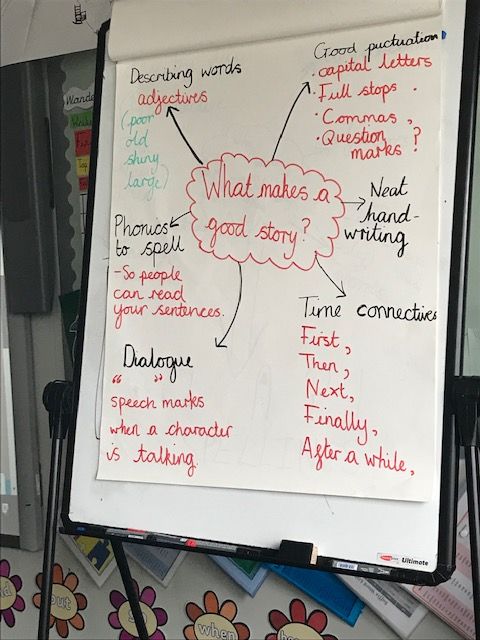 Describing words
adjectives
(poor
old
shiny
large)
Good puctuation
· capital letters
· Full stops .
· Commas ,
· Question ?
marks
What makes a
good story?
Neat
hand-
writing
Phonics
to spell
-So people
can read
your sentences.
Time connectives
First,
Then,
Next,
Finally,
After a while,
Dialogue
“ ”
speech marks
when a character
is talking.
Ultimate
out
when